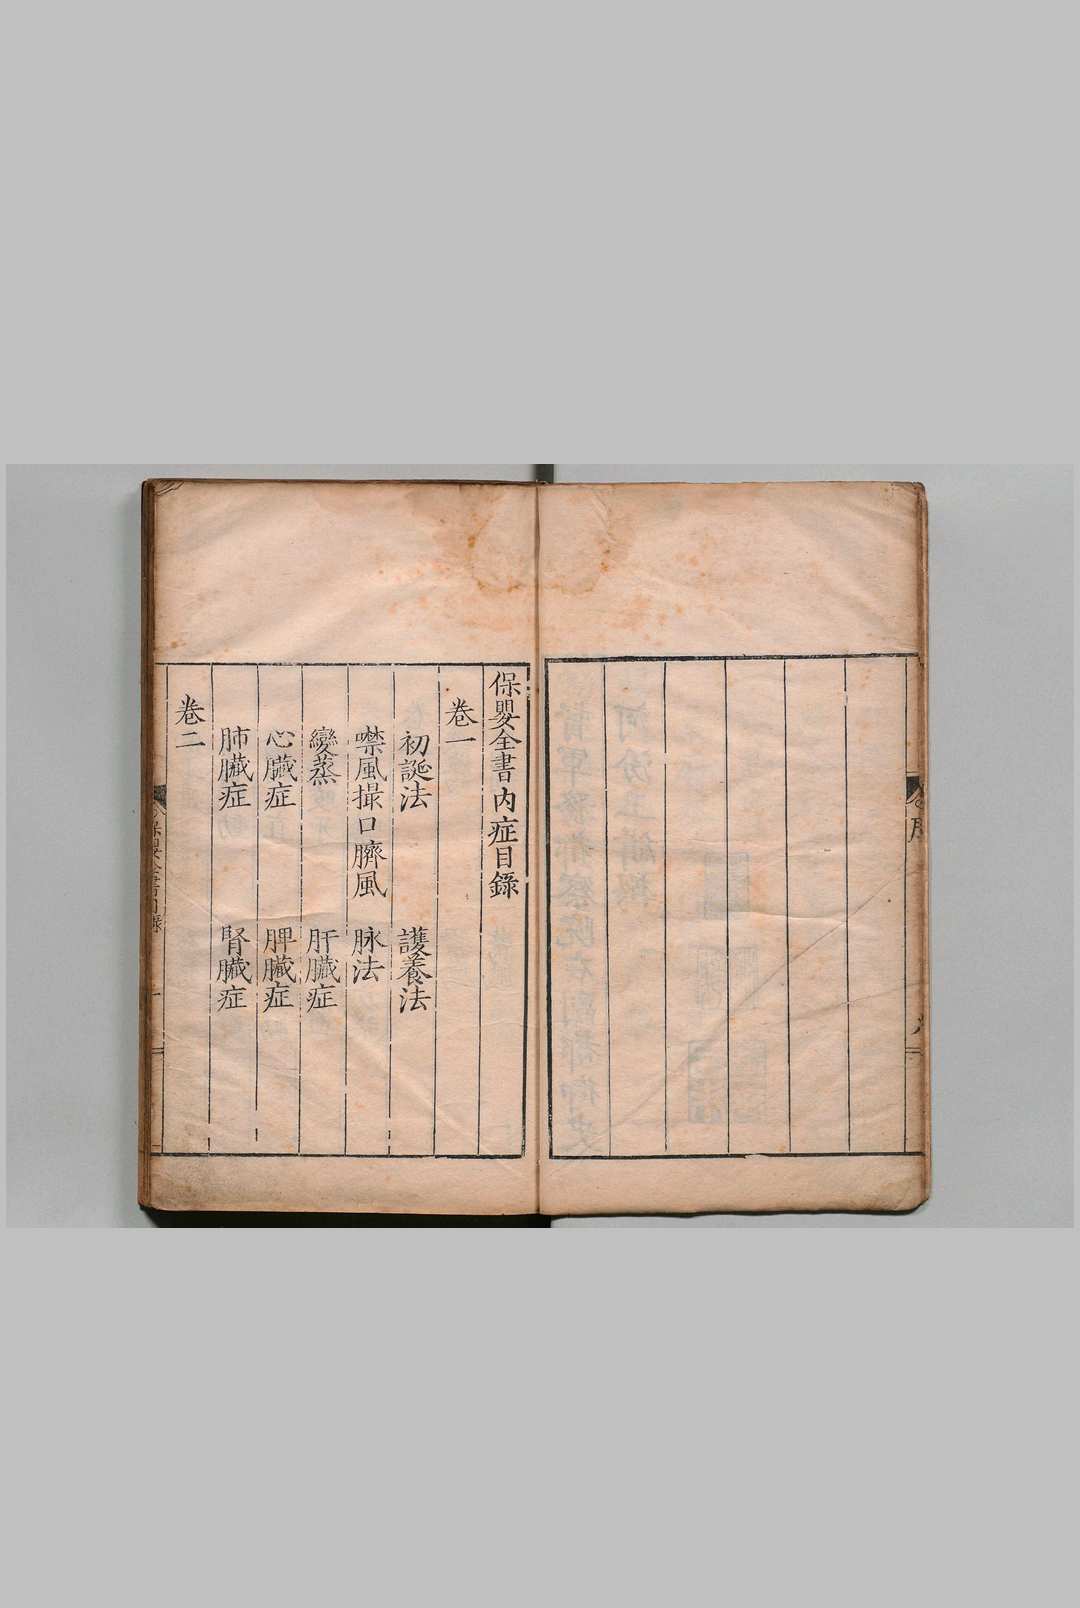 保嬰全書內症目錄
卷一
初誕法　護養法
噤風撮口臍風　脉法
變蒸　肝臟症
心臟症　脾臟症
肺臟症　腎臟症
卷二
保嬰全書目錄